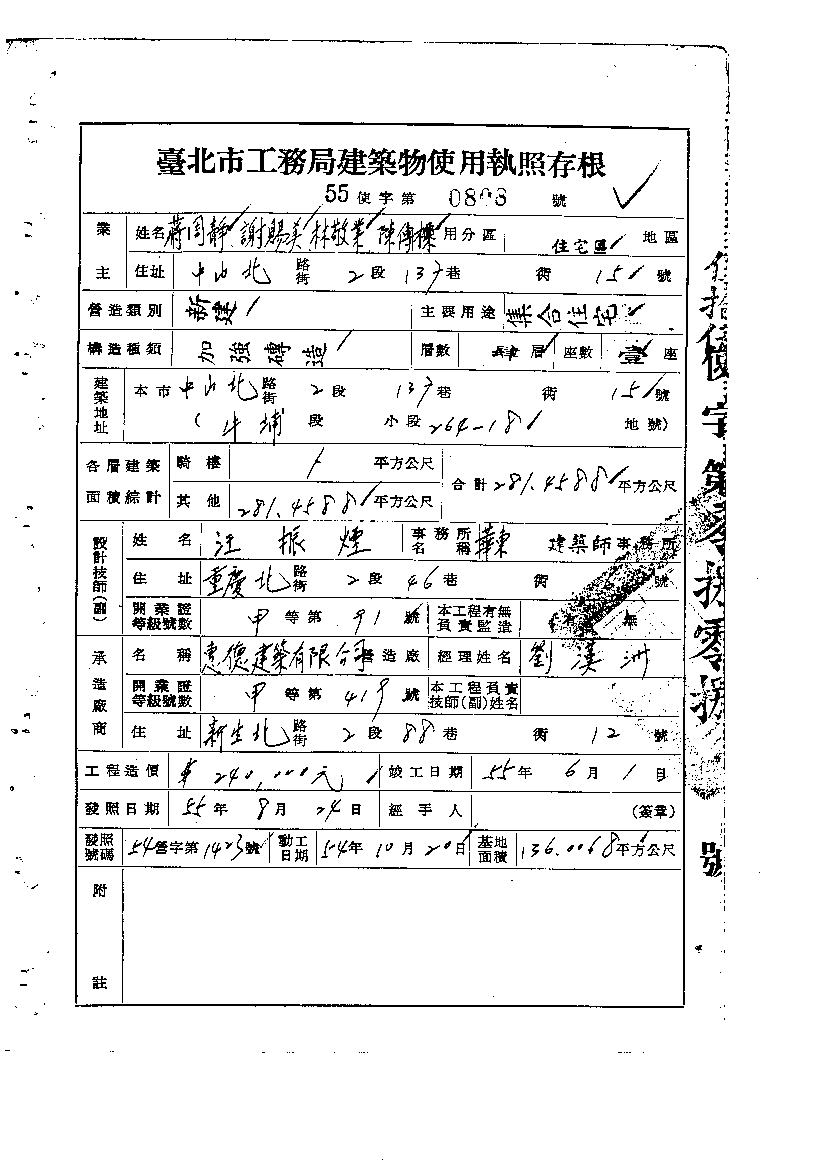 臺北市工務局建築物使用執照存根
55使字第 0808 號
業主 姓名 蔣周靜 謝賜美 林敬業 陳傳標 用分區 住宅區 地區
住址 中山北路街 2段 137巷 街 15 號
營造類別 新建 主要用途 集合住宅
構造種類 加強磚造 層數 層 座數 壹座
建築地址 本市 中山北路街 2段 137巷 街 15 號
(牛埔段 小段 264-18 地號)
各層建築面積綜計 騎樓 / 平方公尺 合計 281.4588 平方公尺
其他 281.4588 平方公尺
設計技師(副) 姓名 汪振煙 事務所名稱 華東 建築師事務所
住址 重慶北路街 2段 46巷 街 號
開業證等級號數 甲等第 91 號 本工程有無負責監造 無
承造廠商 名稱 惠德建築有限公司營造廠 經理姓名 劉漢洲
開業證等級號數 甲等第 419 號 本工程負責技師(副)姓名
住址 新生北路街 2段 88巷 街 12 號
工程造價 240,000元 竣工日期 55年 6月 1日
發照日期 55年 8月 24日 經手人 (簽章)
發照號碼 54營字第1423號 動工日期 54年 10月 20日 基地面積 136.0068平方公尺
附註
使字第零捌零捌號